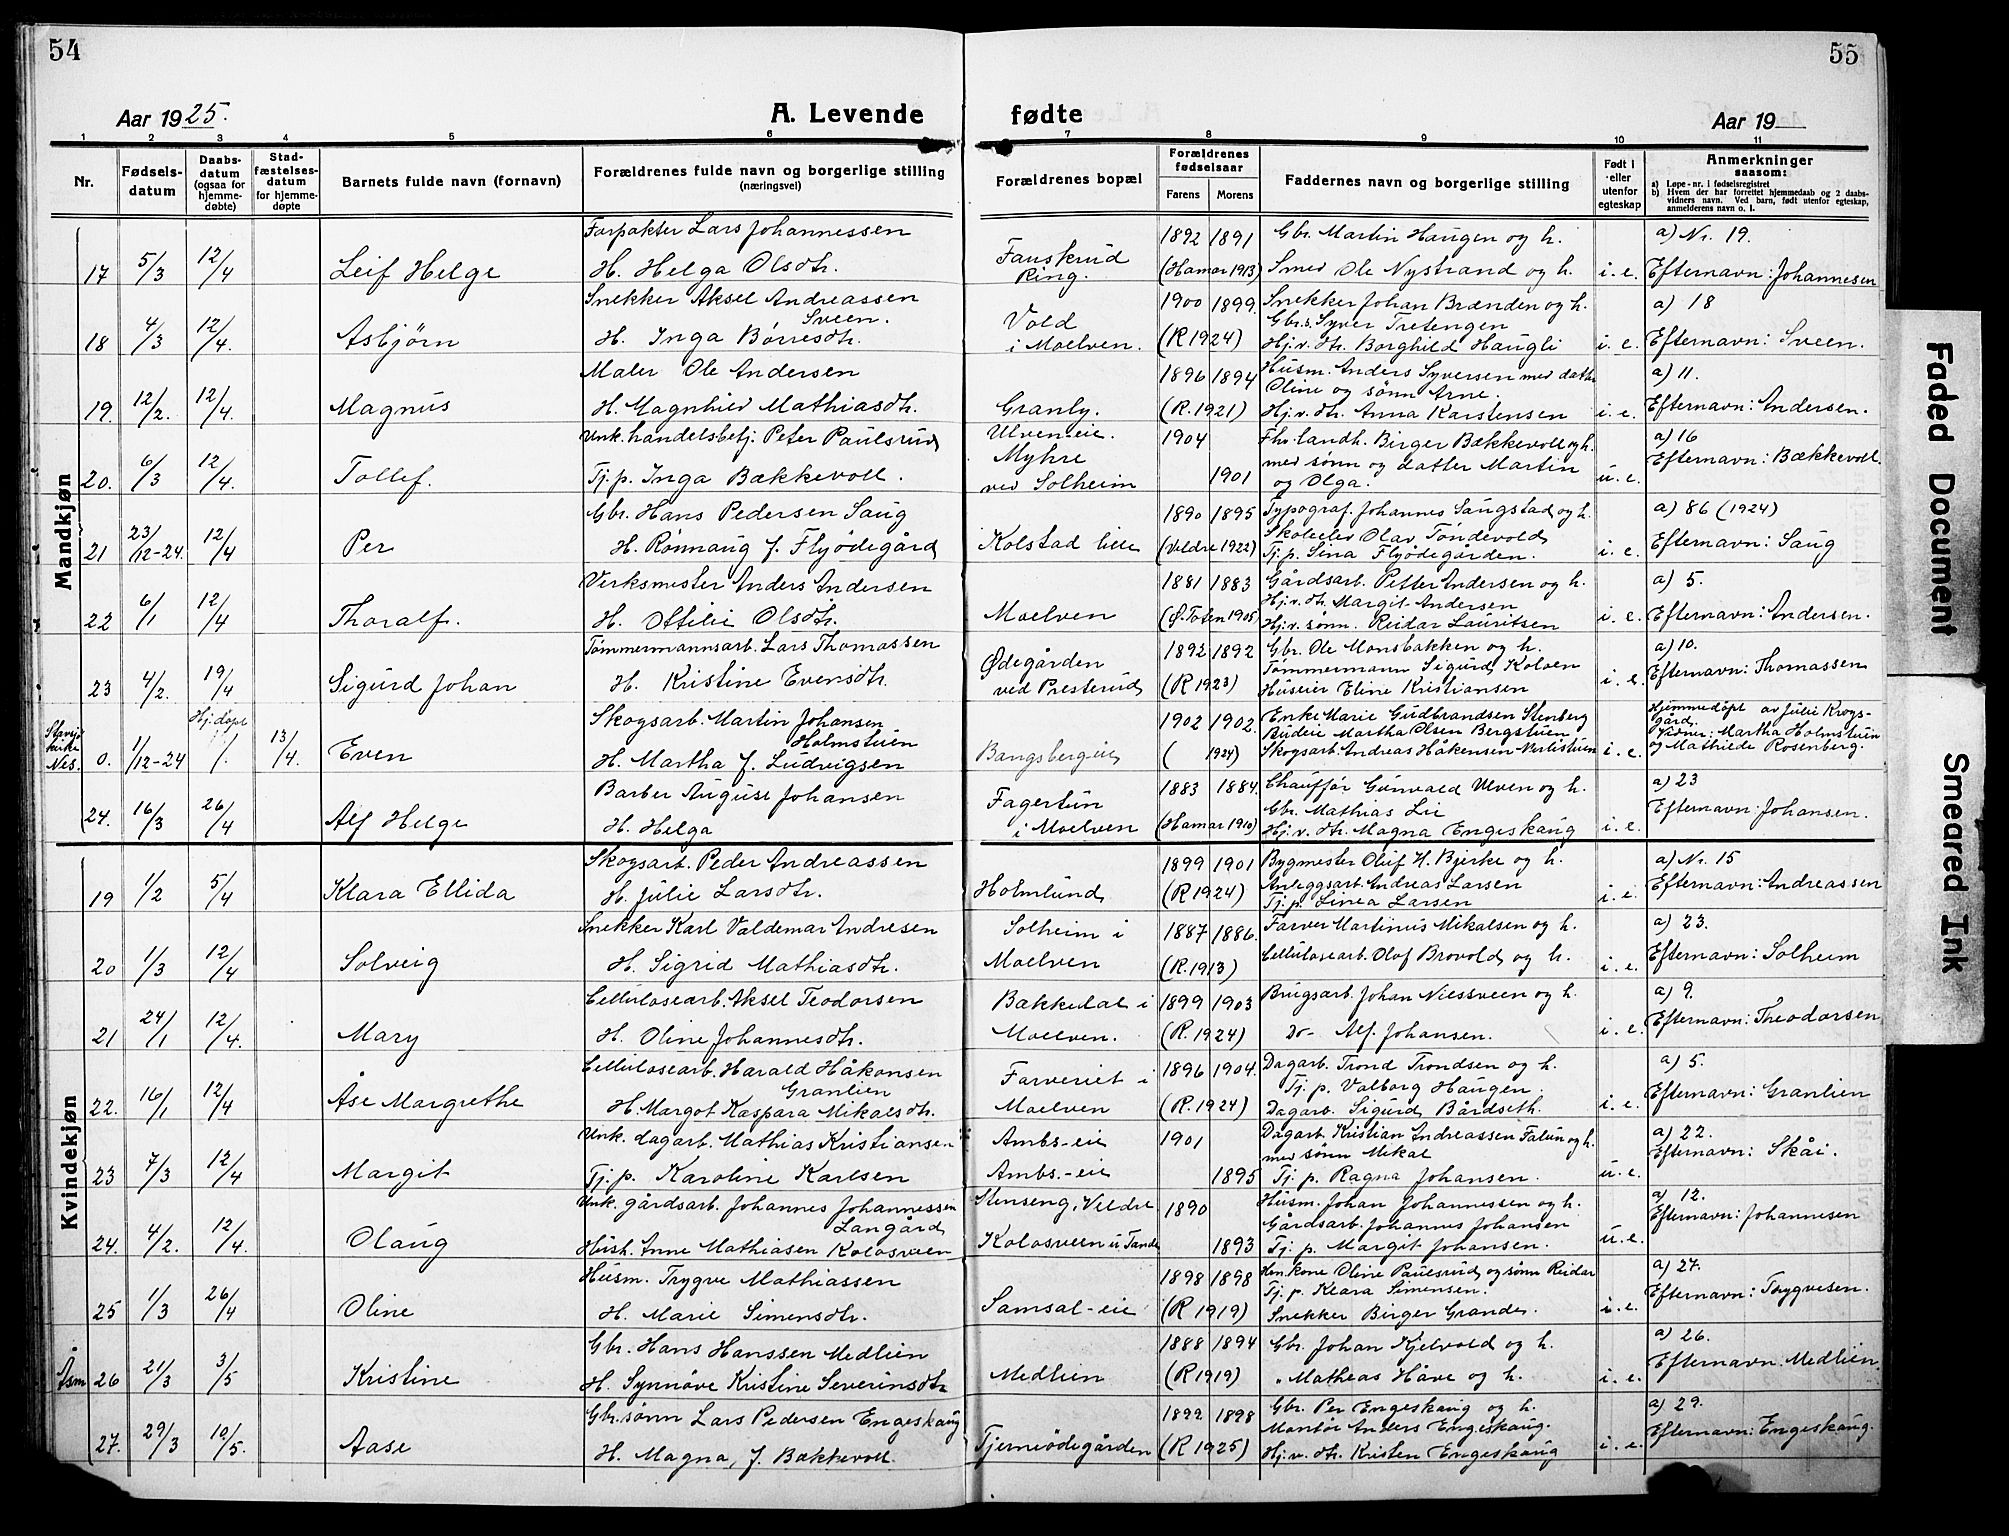 54
55
Aar 1925.
A. Levende
fødte
Aar 19
1 2 3 4 5 6 7 8 9 10 11
Nr.
Fødsels-
datum
Daabs-
datum
(ogsaa for
hjemme-
døbte)
Stad-
fæstelses-
datum
for hjemme-
døpte
Barnets fulde navn (fornavn)
Forældrenes fulde navn og borgerlige stilling
(næringsvei)
Forældrenes bopæl
Forældrenes
fødselsaar
Farens Morens
Faddernes navn og borgerlige stilling
Født i
eller
utenfor
egteskap
Anmerkninger
saasom:
a) Løpe-nr. i fødselsregistret
b) Hvem der har forrettet hjemmedaab og 2 daabs-
vidners navn. Ved barn, født utenfor egteskap,
anmelderens navn o. l.
Mandkjøn
17 5/3 12/4 Leif Helge
Forpakter Lars Johannessen
H. Helga Olsdtr.
Fauskrud
Ring.
1892 1891
(Hamar 1913)
Gbr. Martin Haugen og h.
Smed Ole Nystrand og h.
i. e.
a) Nr. 19.
Efternavn: Johannesen
18 4/3 12/4. Asbjörn
Snekker Aksel Andreassen
Sveen.
H. Inga Börresdtr.
Vold
i Moelven.
1900 1899.
(R 1924)
Snekker Johan Brænden og h.
Gbr.s. Syver Tretengen
Hj.v. dtr. Borghild Haugli
i. e.
a) 18
Efternavn: Sveen.
19. 12/2. 12/4. Magnus
Maler Ole Andersen
H. Magnhild Mathiasdtr.
Granly.
1896 1894
(R. 1921)
Husm. Anders Syversen med datter
Oline og sønn Arne.
Hj.v. dtr. Anna Karstensen
i. e.
a) 11.
Efternavn: Andersen.
20. 6/3 12/4. Tollef.
Unk. handelsbetj. Peter Paulsrud
Tj. p. Inga Bækkevoll.
Ulven eie.
Myhre
ved Solheim
1904
1901
Fhv. landh. Birger Bækkevoll og h.
med sønn og datter Martin
og Olga.
u. e.
a) 16
Efternavn: Bækkevoll.
21 23/12-24. 12/4 Per
Gbr. Hans Pedersen Saug
H. Rönnaug f. Flyödegård
Kolstad lille
1890 1895
(Veldre 1922)
Typograf. Johannes Saugstad og h.
Skoleelev Olav Töndevold
Tj. p. Sina Flyödegården.
i. e.
a) 86 (1924)
Efternavn: Saug
22 6/1 12/4 Thoralf.
Verksmester Anders Andersen
H. Ottilie Olsdtr.
Moelven
1881 1883
(Ø. Toten 1905)
Gårdsarb. Petter Andersen og h.
Hj.v. dtr. Margit Andersen
Hj.v. sønn. Reidar Lauritsen
i. e.
a) 5.
Efternavn: Andersen.
23 4/2. 19/4 Sigurd Johan
Tømmermannsarb. Lars Thomassen
H. Kristine Evensdtr.
Ødegården
ved Presterud
1892 1892
(R 1923)
Gbr. Ole Monsbakken og h.
Tømmermann Sigurd Kolven
Huseier Eline Kristiansen
i. e.
a) 10.
Efternavn: Thomassen
kirke
Nes. 0. 1/12-24 Hj. døpt 13/4. Even
Skogsarb. Martin Johansen
Holmstuen
H. Martha f. Ludvigsen
Bangsberg-eie
1902 1902.
( 1924)
Enke Marie Gudbrandsen Stenberg
Budeie Martha Olsen Bergstuen
Skogsarb. Andreas Håkensen
i. e.
Hjemmedøpt av Julie Krogs-
gård.
Vidner: Martha Holmstuen
og Mathilde Rosenberg.
24. 16/3 26/4 Alf Helge
Barber August Johansen
H. Helga
Fagertun
i Moelven
1883 1884.
(Hamar 1910)
Chauffør Gunvald Ulven og h.
Gbr. Mathias Lie
Hj.v. dtr. Magna Engeskaug
i. e.
a) 23
Efternavn: Johansen.
Kvindekjøn
19 1/2 5/4 Klara Ellida
Skogsarb. Peder Andreassen
H. Julie Larsdtr.
Holmlund
1899 1901
(R 1924)
Bygmester Oluf H. Bjerke og h.
Anleggsarb. Andreas Larsen
Tj. p. Linea Larsen
i. e.
a) Nr. 15
Efternavn: Andreassen
20 1/3 12/4 Solveig
Snekker Karl Valdemar Andresen
H. Sigrid Mathiasdtr.
Solheim i
Moelven
1887 1886.
(R. 1913)
Farver Martinius Mikalsen og h.
Cellulosearb. Olof Brovold og h.
i. e.
a) 23.
Efternavn: Solheim
21 24/1 12/4. Mary
Cellulosearb. Aksel Teodorsen
H. Oline Johannesdtr.
Bakkedal i
Moelven.
1899 1903
(R. 1924)
Brugsarb. Johan Niessveen og h.
Do- Alf. Johansen.
i. e.
a) 9.
Efternavn: Theodorsen
22. 16/1 12/4 Åse Margrethe
Cellulosearb. Harald Håkonsen
Granlien
H. Margot Kaspara Mikalsdtr.
Farveriet i
Moelven
1896 1904.
(R. 1924)
Dagarb. Trond Trondsen og h.
Tj. p. Valborg Haugen.
Dagarb. Sigurd Bårdseth.
i. e.
a) 5.
Efternavn: Granlien
23 7/3 12/4 Margit
Unk. dagarb. Mathias Kristiansen
Tj. p. Karoline Karlsen
Ambs-eie
Ambs.-eie
1901
1895
Dagarb. Kristian Andreassen Falun og h.
med sønn Mikal
Tj. p. Ragna Johansen.
u. e.
a) 22.
Efternavn: Skåi.
24. 4/2. 12/4. Olaug
Unk. gårdsarb. Johannes Johannessen
Langård
Hush. Anne Mathiasen Kolosveen
Stenseng, Veldre
Kolosveen u. Tande
1890
1893
Husm. Johan Johannessen og h.
Gårdsarb. Johannes Johansen
Tj. p. Margit Johansen.
u. e.
a) 12.
Efternavn: Johannesen
25 1/3 26/4 Oline
Husm. Trygve Mathiassen
H. Marie Simensdtr.
Samsal-eie
1898 1898
(R 1919)
Hm. kone Oline Paulsrud og sønn Reidar
Tj. p. Klara Simensen.
Snekker Birger Grande.
i. e.
a) 27.
Efternavn: Trygvesen.
Åsm 26 21/3 3/5 Kristine
Gbr. Hans Hanssen Medlien
H. Synnöve Kristine Severinsdtr
Medlien
1888 1894
(R 1919)
Gbr. Johan Kjelvold og h.
" Matheas Håve og h.
i. e.
a) 26.
Efternavn: Medlien.
27. 29/3 10/5. Aase
Gbr.sønn Lars Pedersen Engeskaug
H. Magna, f. Bækkevoll
Tjerneödegården
1892 1898
(R 1925)
Gbr. Per Engeskaug og h.
Montör Anders Engeskaug.
Hj.v. dtr. Kristen Engeskaug
i. e.
a) 29.
Efternavn: Engeskaug.
Faded Document
Smeared Ink